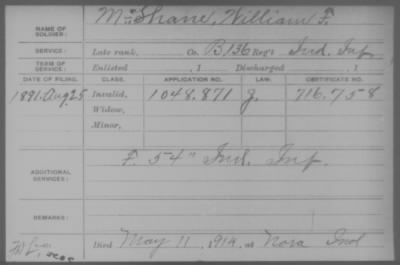 NAME OF SOLDIER: McShane, William F.
SERVICE: Late rank, Co. B, 136 Reg't Ind. Inf.
TERM OF SERVICE: Enlisted , 1 Discharged , 1
DATE OF FILING. CLASS. APPLICATION NO. LAW. CERTIFICATE NO.
1891. Aug 25 Invalid, 1048.871 J. 716.758
Widow,
Minor,
ADDITIONAL SERVICES: F. 54" Ind. Inf.
REMARKS:
Died May 11, 1914, at Nora Ind